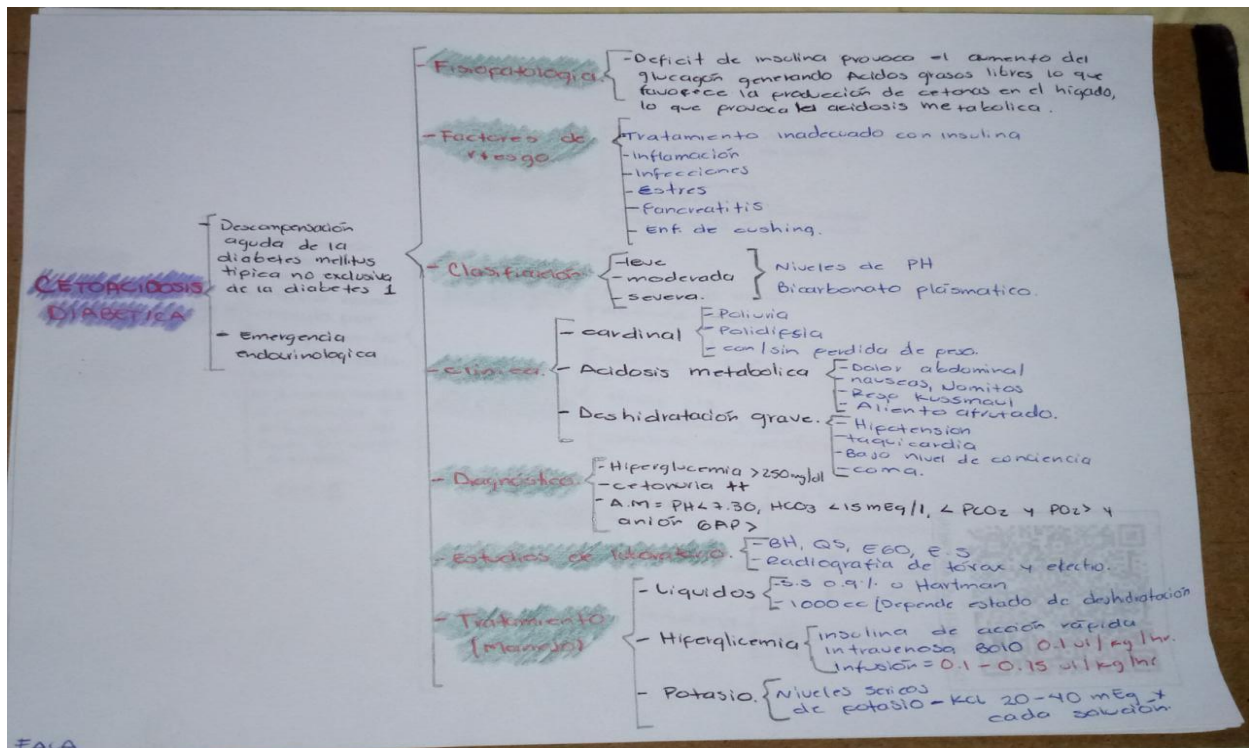 CETOACIDOSIS
DIABETICA
- Descompensación
aguda de la
diabetes mellitus
tipica no exclusiva
de la diabetes 1
- Emergencia
endocrinologica
- Fisiopatologia
- Deficit de insulina provoca el aumento del
glucagón generando Acidos grasos libres lo que
favorece la producción de cetonas en el higado,
lo que provoca la acidosis metabolica.
- Factores de
riesgo
- Tratamiento inadecuado con insulina
- Inflamación
- Infecciones
- Estres
- Pancreatitis
- Enf. de cushing.
- Clasificación
- leve
- moderada
- severa.
Niveles de PH
Bicarbonato plasmatico.
- Clinica.
- cardinal
- Poliuria
- Polidipsia
- con/sin perdida de peso.
- Acidosis metabolica
- Dolor abdominal
- nauseas, Vomitos
- Resp Kussmaul
- Aliento afrutado.
- Deshidratación grave.
- Hipotension
- taquicardia
- Bajo nivel de conciencia
- coma.
- Diagnóstico.
- Hiperglucemia >250 mg/dl
- cetonuria ++
- A.M = PH<7.30, HCO3 <15 mEg/l, < PCO2 y PO2> y
anión GAP>
- Estudios de laboratorio.
- BH, QS, EGO, E.S
- Radiografia de torax y electro.
- Tratamiento
(Manejo)
- Liquidos
- S.S 0.9% o Hartman
- 1000cc (Depende estado de deshidratación
- Hiperglicemia
insulina de acción rápida
intravenosa Bolo 0.1 ui/kg/hr.
Infusión = 0.1 - 0.15 ui/kg/hr
- Potasio.
Niveles sericos
de potasio - KCL 20-40 mEg x
cada solución.